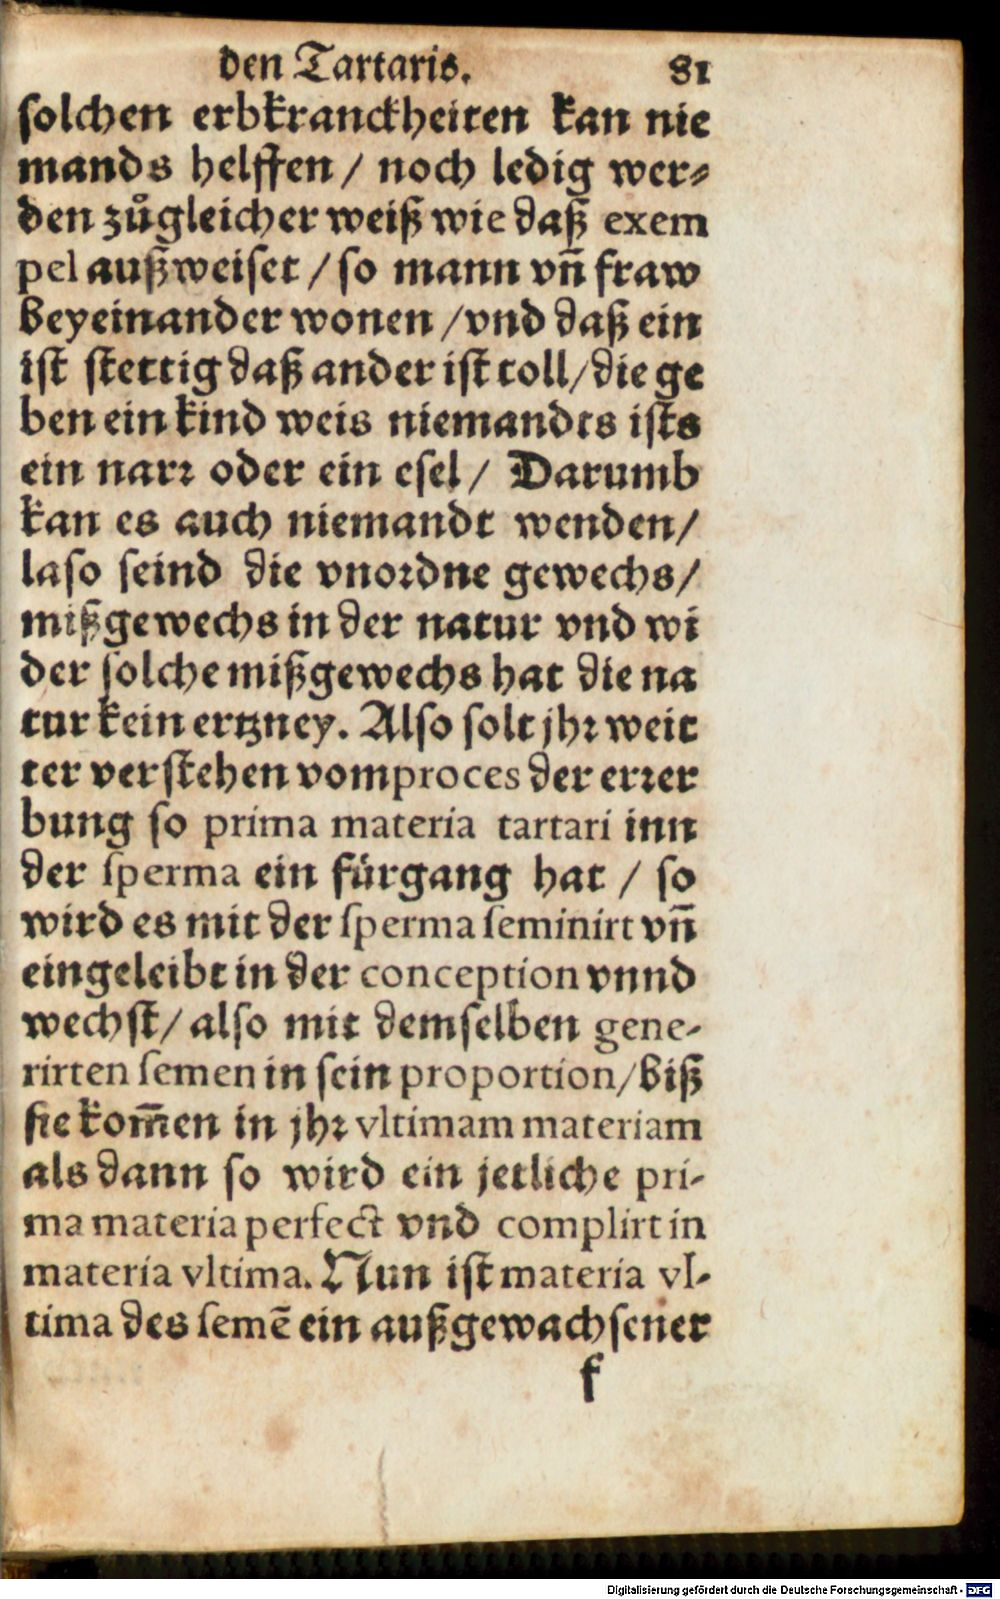 den Tartaris. 81
solchen erbkranckheiten kan nie
mands helffen / noch ledig wer⸗
den zůgleicher weiß wie daß exem
pel außweiset / so mann vñ fraw
beyeinander wonen / vnd daß ein
ist stettig daß ander ist toll / die ge
ben ein kind weis niemandts ists
ein narr oder ein esel / Darumb
kan es auch niemandt wenden /
laso seind die vnordne gewechs /
mißgewechs in der natur vnd wi
der solche mißgewechs hat die na
tur kein ertzney. Also solt jhr weit
ter verstehen vom proces der errer
bung so prima materia tartari inn
der sperma ein fürgang hat / so
wird es mit der sperma seminirt vñ
eingeleibt in der conception vnnd
wechst / also mit demselben gene-
rirten semen in sein proportion / biß
sie kom̃en in jhr vltimam materiam
als dann so wird ein jetliche pri-
ma materia perfect vnd complirt in
materia vltima. Nun ist materia vl-
tima des semē ein außgewachsener
f
Digitalisierung gefördert durch die Deutsche Forschungsgemeinschaft - DFG